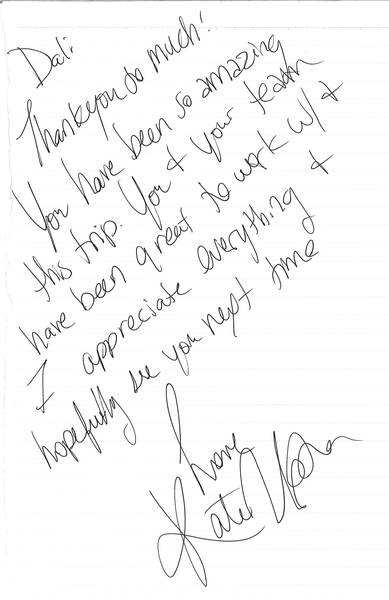 Dali
Thankyou so much!
You have been so amazing
this trip. You & your team
have been great to work w/ &
I appreciate everything &
hopefully see you next time
Love
Kate Upton